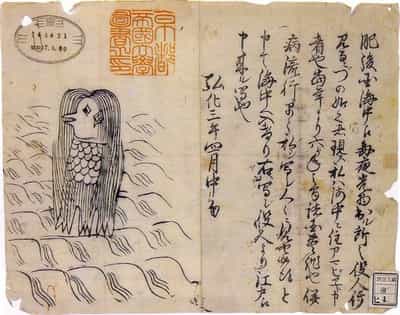 肥後国海中え毎夜光物出ル所之役人行
見るニづの如之者現ス私ハ海中ニ住アマビヱト申
者也当年より六ヶ年之間諸国豊作也併
病流行早々私ヲ写シ人々ニ見セ候得と
申て海中へ入けり右ハ写シ役人より江戸え
申来ル写也
弘化三年四月中旬
京都
帝國大學
圖書之印